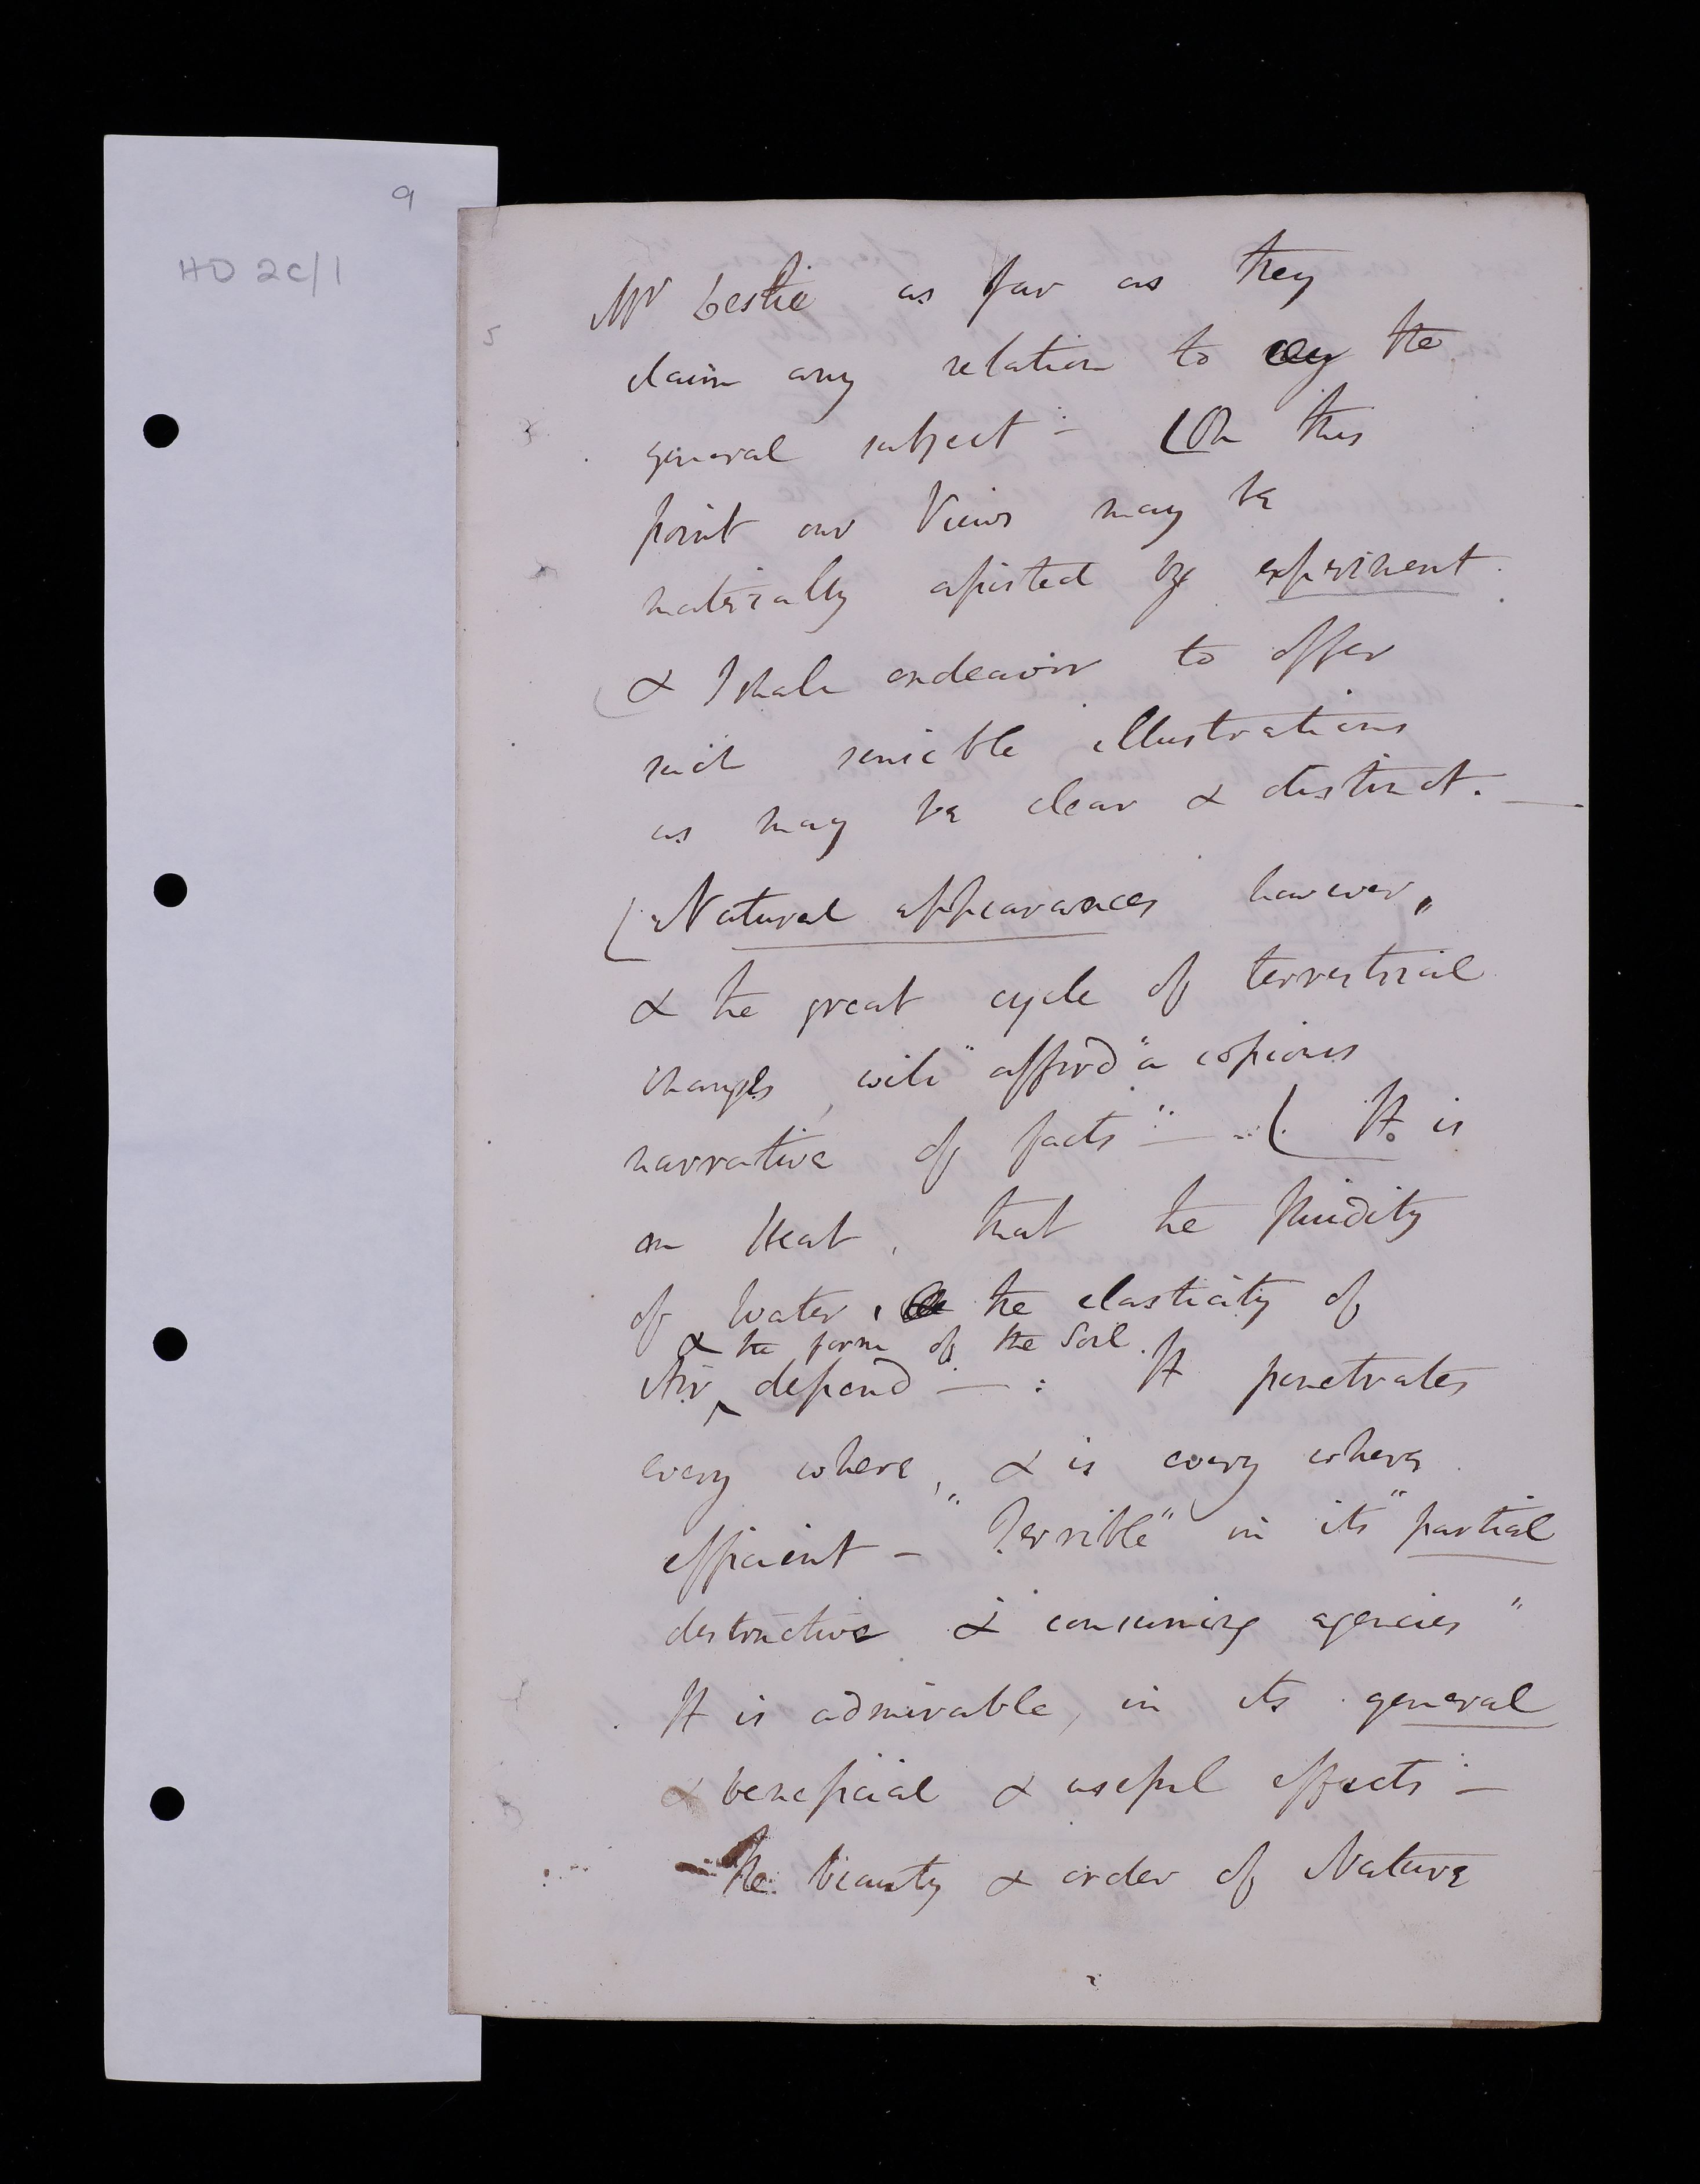 9
HD 2C/1
5
Mr Leslie as far as they
claim any relation to the
general subject :- (On this
point our Views may be
materially assisted by experiment.
& I shall endeavor to offer
such sensible illustrations
as may be clear & distinct. —
(Natural appearances however,,
& the great cycle of terrestrial
changes, will " afford " a copious
narrative of facts " — ( It is
on Heat, that the fluidity
of Water, the elasticity of
& the form of the Soil.
Air ‸ depend — : It penetrates
every where, & is every where
efficient — " Terrible " in its " partial
destructive & consuming agencies "
It is admirable, in its general
& beneficial & useful effects :-
— The beauty & order of Nature